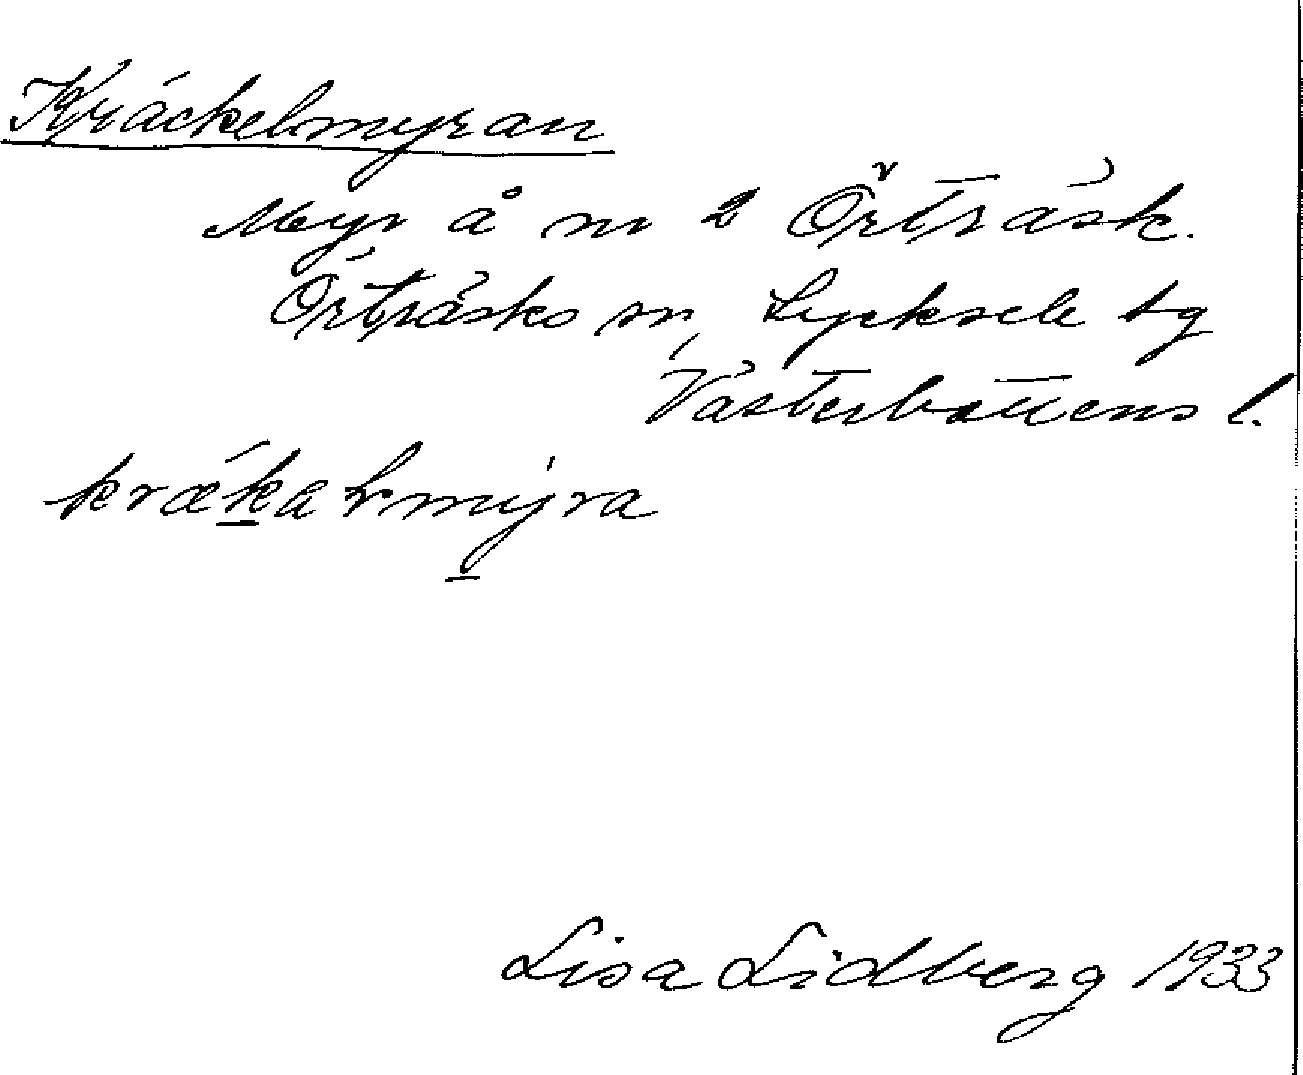 Kräckelmyran
Myr å nr 2 Örträsk.
Örträsks sn, Lycksele tg
Västerbottens l.
krækaɫmyra
Lisa Lidberg 1933